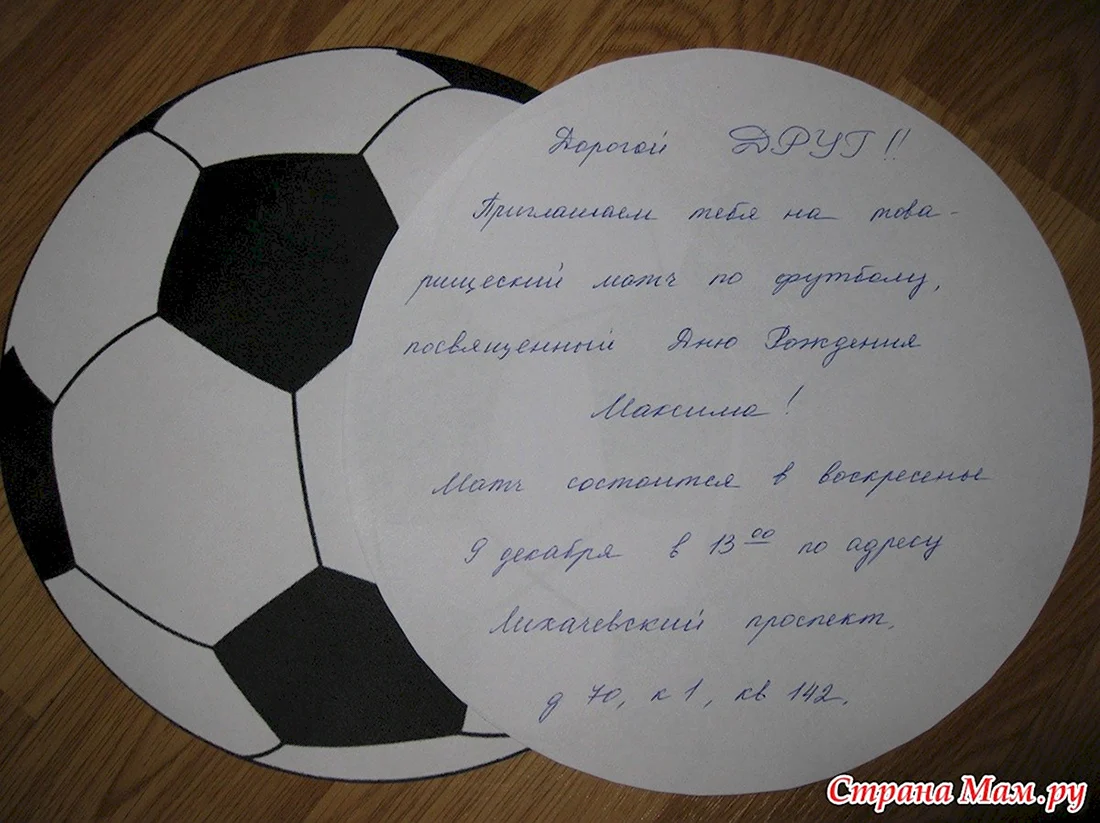 Дорогой ДРУГ!!
Приглашаем тебя на това-
рищеский матч по футболу,
посвященный Дню Рождения
Максима!
Матч состоится в воскресенье
9 декабря в 13 00 по адресу
Лихачевский проспект,
д 70, к 1, кв 142.
Страна Мам.ру